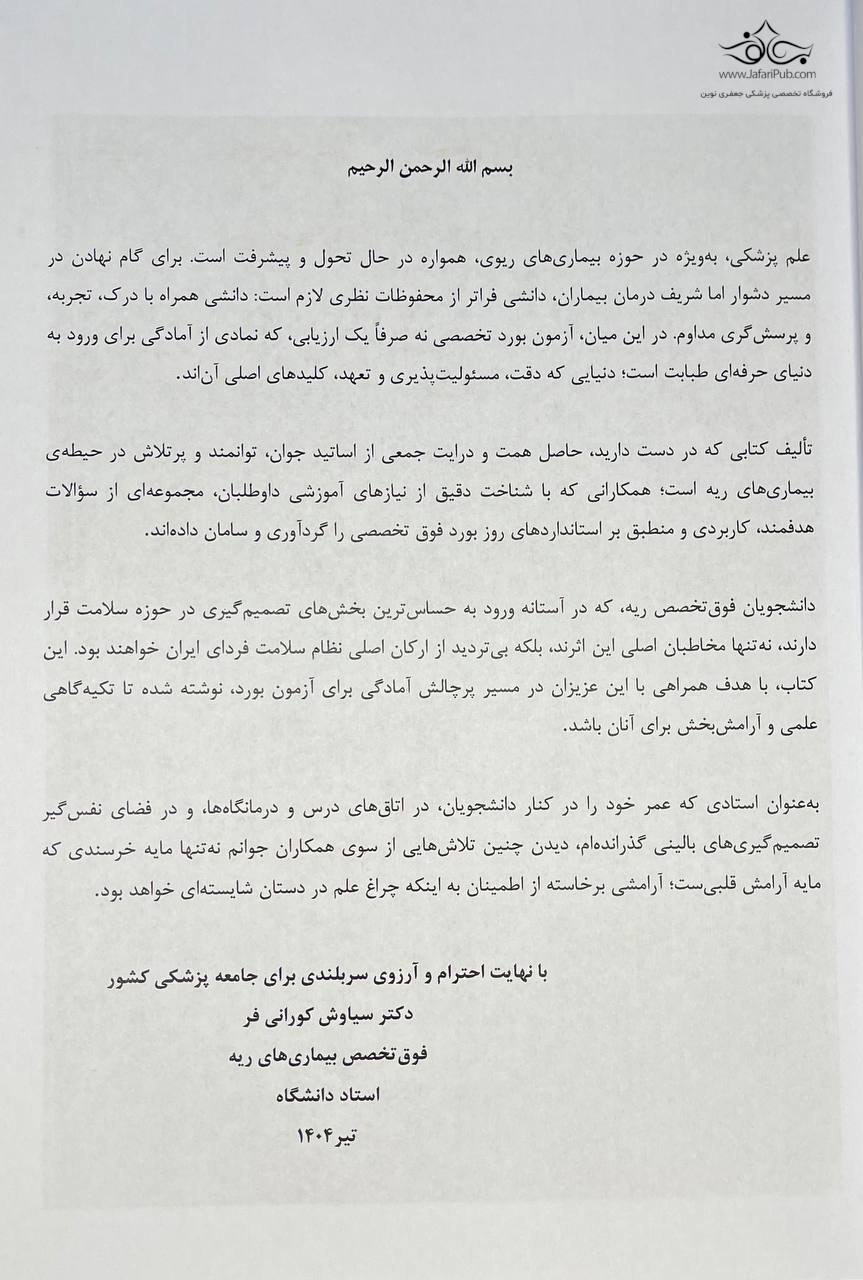 www.JafariPub.com
فروشگاه تخصصی پزشکی جعفری نوین
بسم الله الرحمن الرحیم
علم پزشکی، به‌ویژه در حوزه بیماری‌های ریوی، همواره در حال تحول و پیشرفت است. برای گام نهادن در
مسیر دشوار اما شریف درمان بیماران، دانشی فراتر از محفوظات نظری لازم است: دانشی همراه با درک، تجربه،
و پرسش‌گری مداوم. در این میان، آزمون بورد تخصصی نه صرفاً یک ارزیابی، که نمادی از آمادگی برای ورود به
دنیای حرفه‌ای طبابت است؛ دنیایی که دقت، مسئولیت‌پذیری و تعهد، کلیدهای اصلی آن‌اند.
تألیف کتابی که در دست دارید، حاصل همت و درایت جمعی از اساتید جوان، توانمند و پرتلاش در حیطه‌ی
بیماری‌های ریه است؛ همکارانی که با شناخت دقیق از نیازهای آموزشی داوطلبان، مجموعه‌ای از سؤالات
هدفمند، کاربردی و منطبق بر استانداردهای روز بورد فوق تخصصی را گردآوری و سامان داده‌اند.
دانشجویان فوق‌تخصص ریه، که در آستانه ورود به حساس‌ترین بخش‌های تصمیم‌گیری در حوزه سلامت قرار
دارند، نه‌تنها مخاطبان اصلی این اثرند، بلکه بی‌تردید از ارکان اصلی نظام سلامت فردای ایران خواهند بود. این
کتاب، با هدف همراهی با این عزیزان در مسیر پرچالش آمادگی برای آزمون بورد، نوشته شده تا تکیه‌گاهی
علمی و آرامش‌بخش برای آنان باشد.
به‌عنوان استادی که عمر خود را در کنار دانشجویان، در اتاق‌های درس و درمانگاه‌ها، و در فضای نفس‌گیر
تصمیم‌گیری‌های بالینی گذرانده‌ام، دیدن چنین تلاش‌هایی از سوی همکاران جوانم نه‌تنها مایه خرسندی که
مایه آرامش قلبی‌ست؛ آرامشی برخاسته از اطمینان به اینکه چراغ علم در دستان شایسته‌ای خواهد بود.
با نهایت احترام و آرزوی سربلندی برای جامعه پزشکی کشور
دکتر سیاوش کورانی فر
فوق‌تخصص بیماری‌های ریه
استاد دانشگاه
تیر ۱۴۰۴